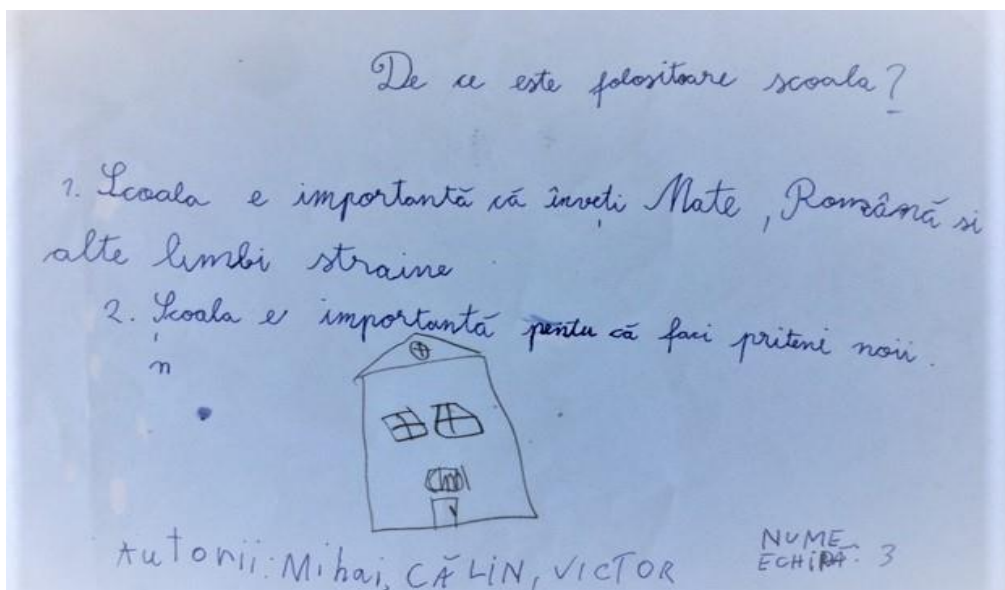 De ce este folositoare scoala?
1. Scoala e importantă că înveți Mate, Română si
alte limbi straine
2. Școala e importantă pentu că faci priteni noii.
n
Autorii: Mihai, CĂLIN, VICTOR
NUME
ECHIPA: 3